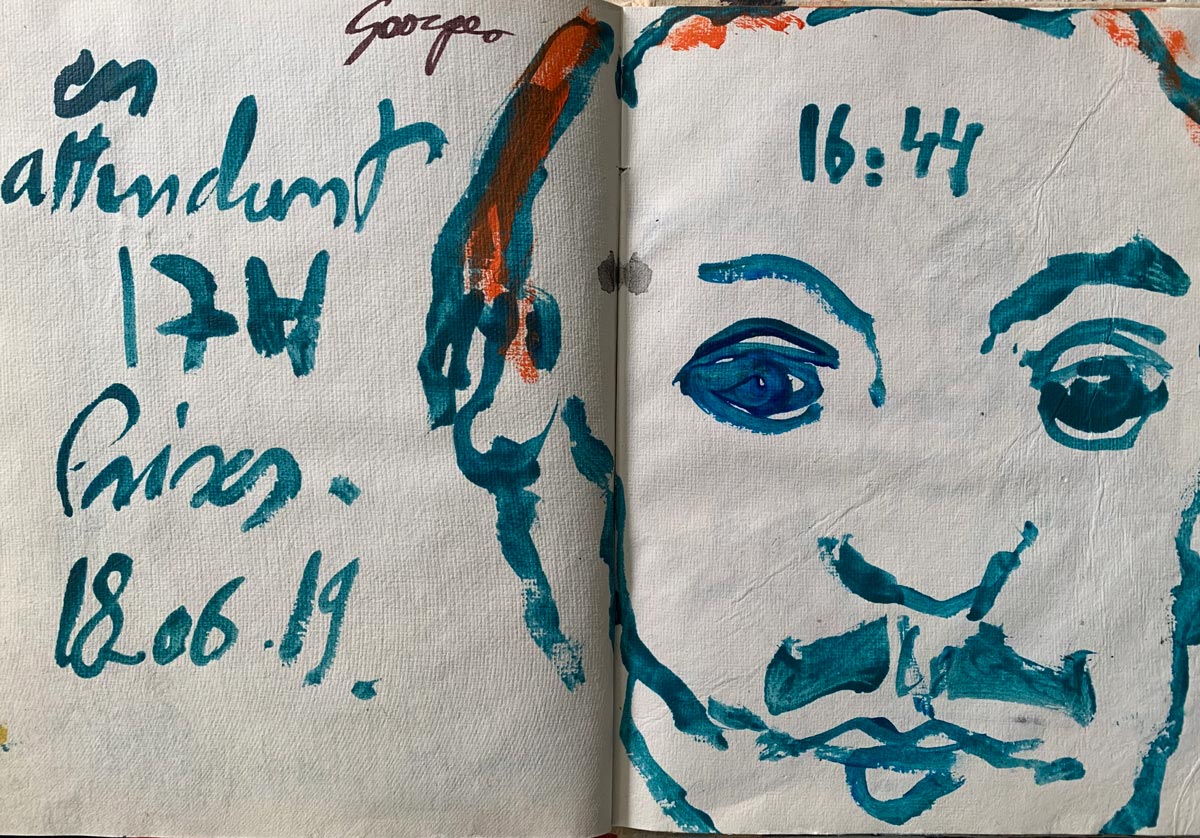 Georges
en
attendant
17H
18.06.19.
16:44